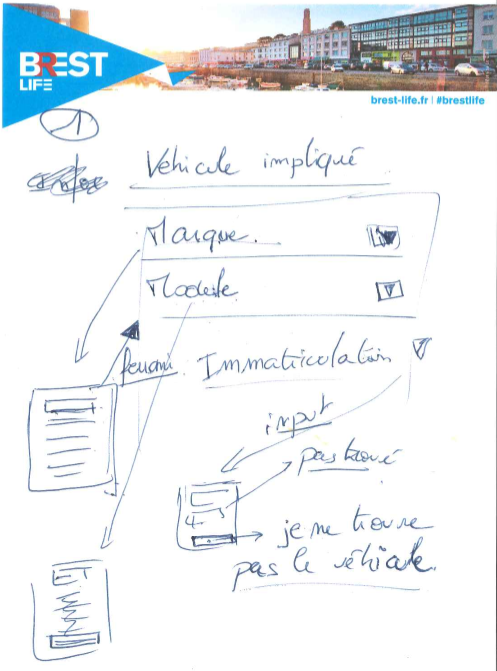 BREST
LIFE
brest-life.fr | #brestlife
1
Véhicule impliqué
Marque.
Modèle
Immatriculation
input
pas trouvé
je ne trouve
pas le véhicule.